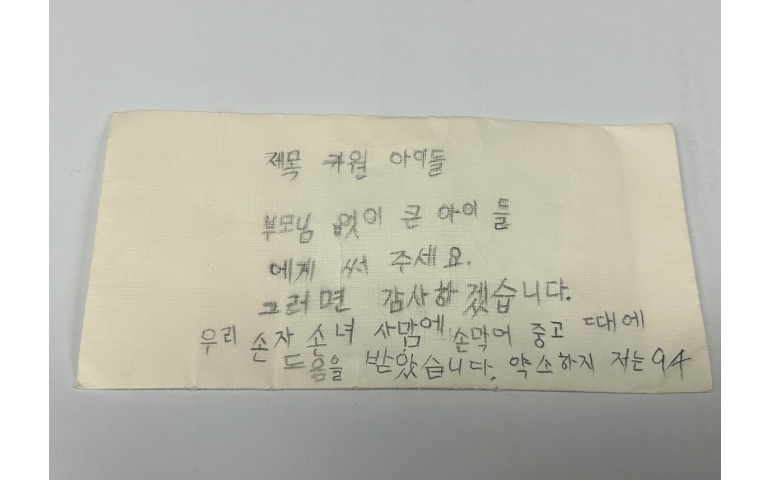 제목 귀원 아이들
부모님 없이 큰 아이들
에게 써 주세요.
그러면 감사하겠습니다.
우리 손자 손녀 사맘에 손막어 중고 때에
도움을 받았습니다. 약소하지 저는 94